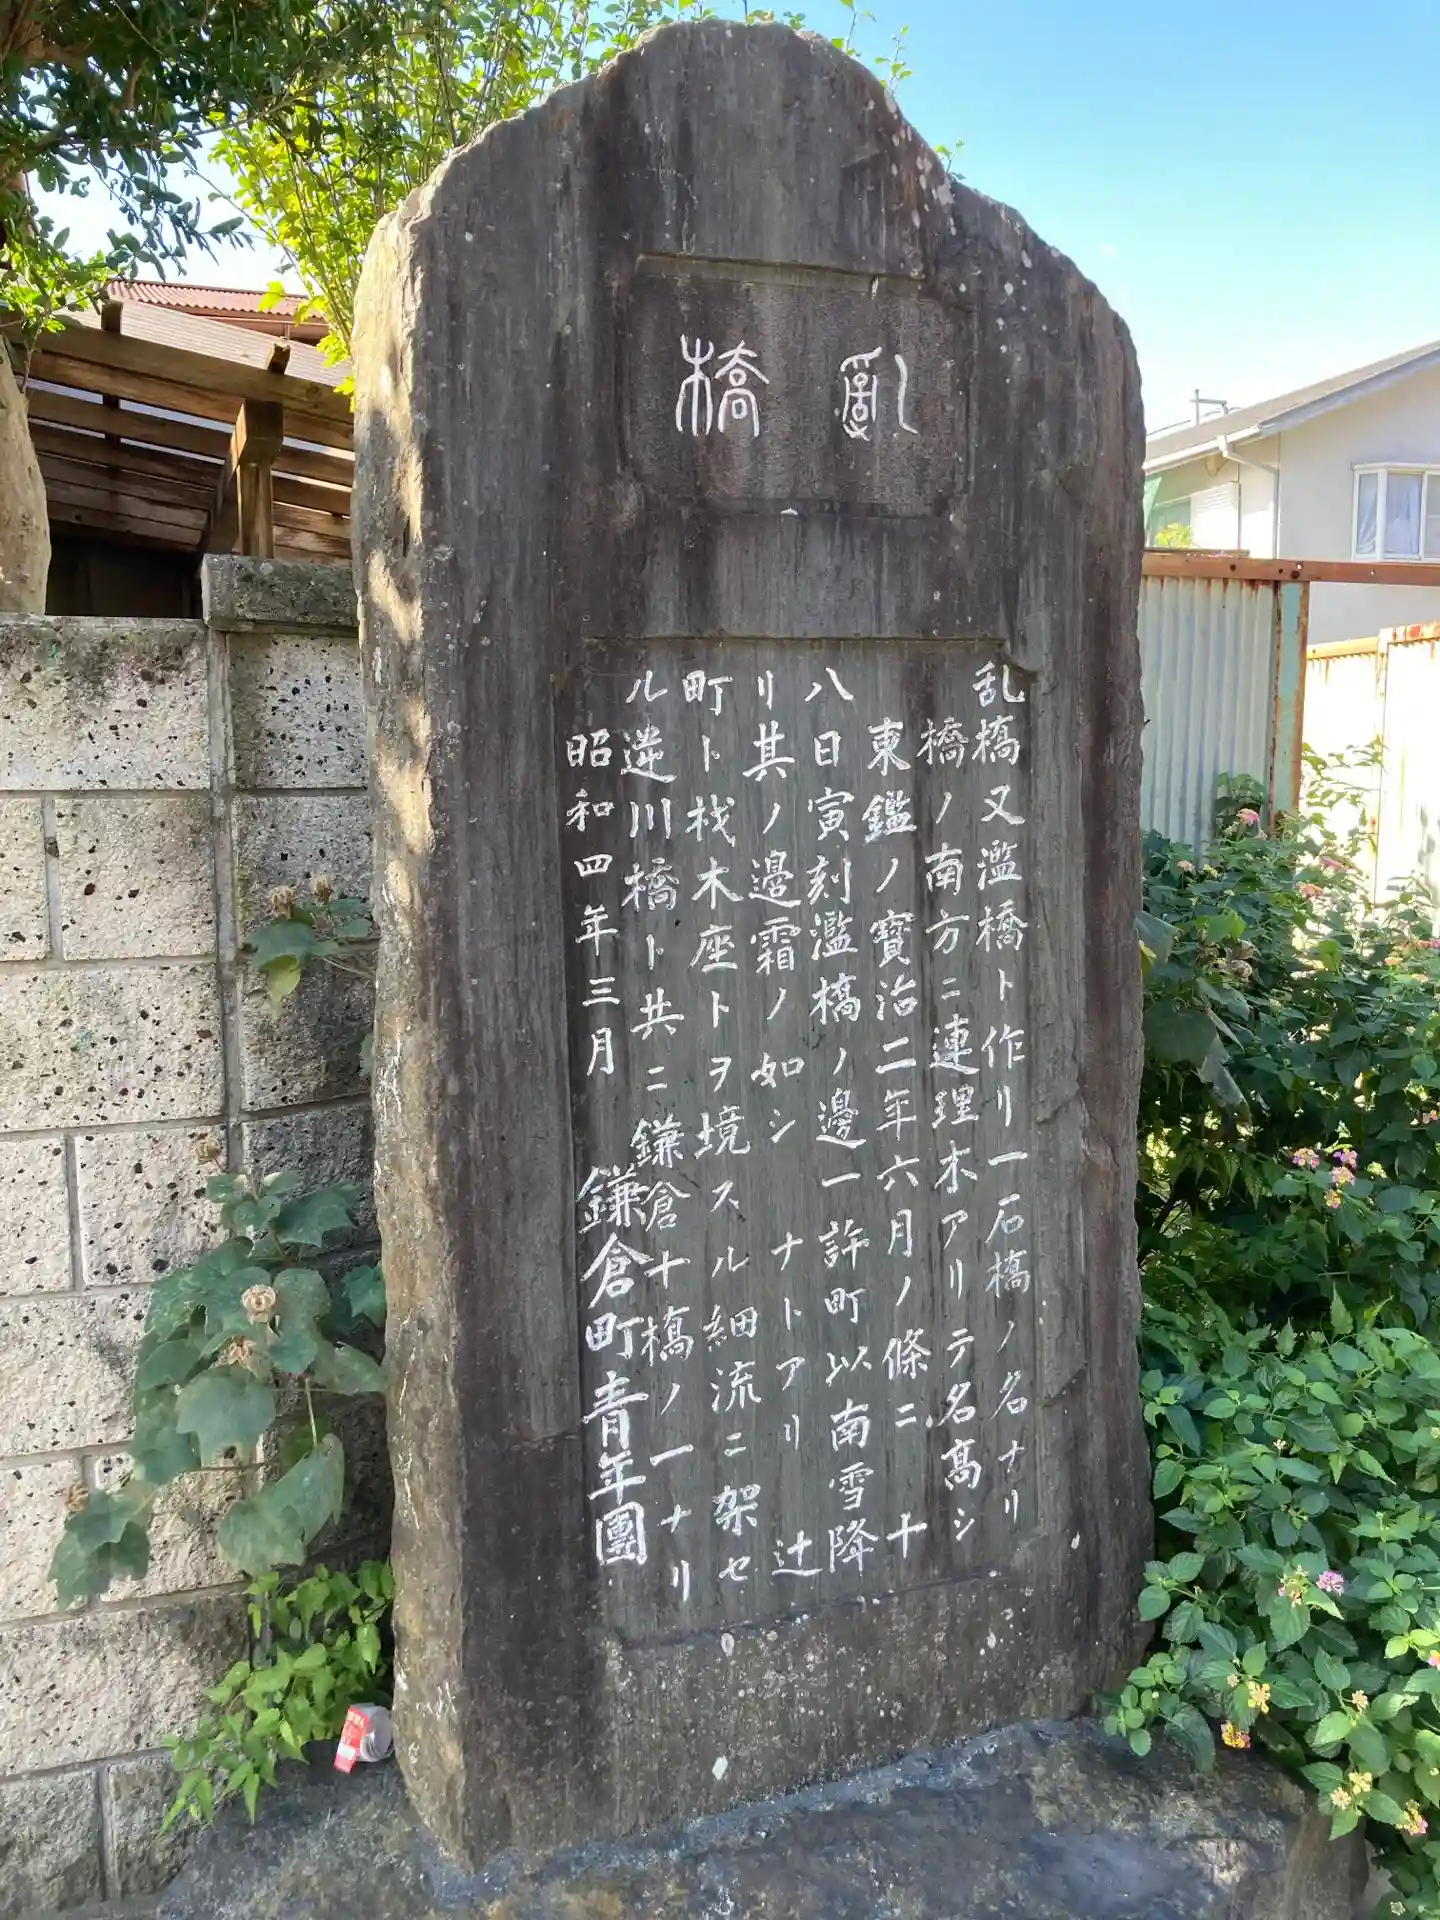 亂橋
乱橋又濫橋ト作リ一石橋ノ名ナリ
橋ノ南方ニ連理木アリテ名高シ
東鑑ノ寳治二年六月ノ條ニ十
八日寅刻濫橋ノ邊一許町以南雪降
リ其ノ邊霜ノ如シ ナトアリ 辻
町ト材木座トヲ境スル細流ニ架セ
ル逆川橋ト共ニ鎌倉十橋ノ一ナリ
昭和四年三月 鎌倉町青年團